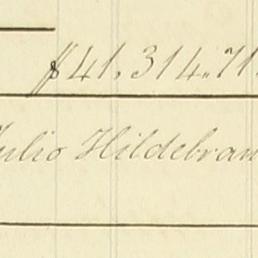 $41.314.71
Julio Hildebran